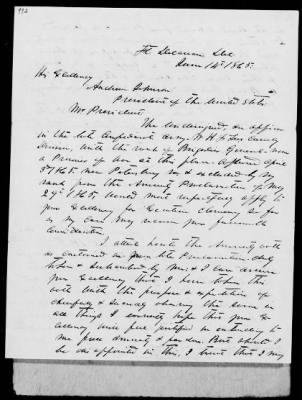 Ft Delaware Del
June 14th 1865.
His Excellency
Andrew Johnson
President of the United States
Mr President
The undersigned, an officer
in the late Confederate Army, W. H. F. Lee's Cavalry
Division, with the rank of Brigadier General now
a Prisoner of War at this place captured April
3d 1865 near Petersburg Va & excluded by my
rank from the Amnesty Proclamation of May
29th 1865, would most respectfully apply to
your Excellency for Executive clemency so far
as my case may receive your favorable
consideration
I attach hereto the Amnesty oath
as contained in your late Proclamation, duly
taken & subscribed by me, & I can assure
your Excellency that I have taken this
oath with the purpose & expectation of
cheerfully & sacredly observing the same in
all things I earnestly hope that your Ex-
cellency will feel justified in extending to
me free amnesty & pardon. But should I
be disappointed in this, I trust that I may